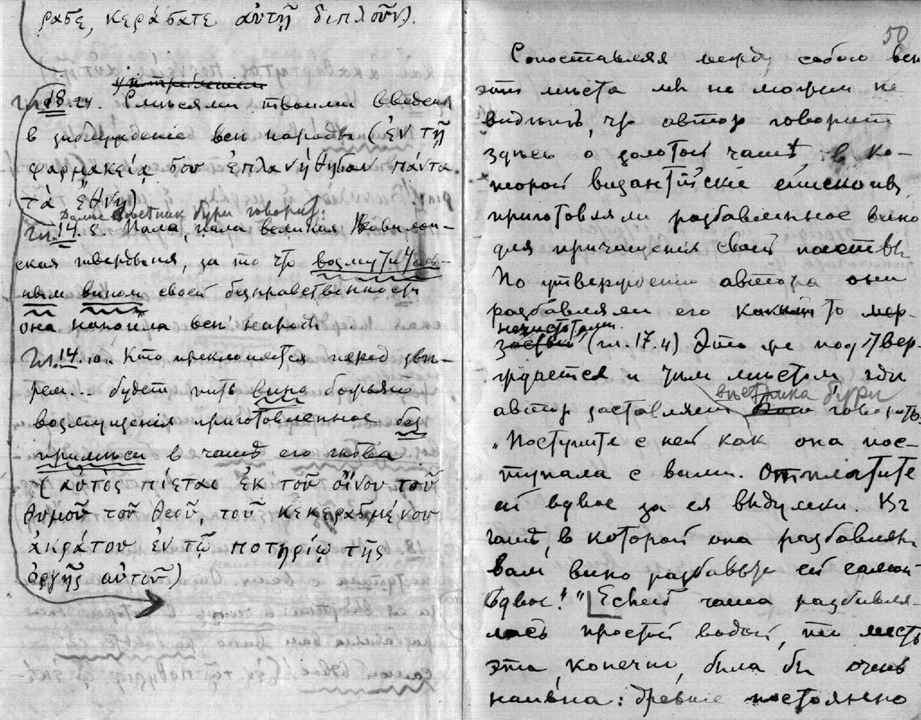 ρασε, κεράσατε αὐτῇ διπλοῦν).
Гл. 18. 24. Смѣсями твоими введены
в заблужденіе всѣ народы (ἐν τῇ
φαρμακείᾳ σου ἐπλανήθησαν πάντα
τὰ ἔθνη)
Далѣе вѣстник бури говорит:
Гл. 14. 8. Пала, пала великая Вавилон-
ская твердыня, за то что возмутитель-
ным вином своей безнравственности
она напоила всѣ народы
Гл. 14. 10. Кто преклоняется перед звѣ-
рем... будет пить вино божьяго
возмущенія приготовленное без
примѣси в чашѣ его гнѣва
(αὐτὸς πίεται ἐκ τοῦ οἴνου τοῦ
θυμοῦ τοῦ θεοῦ, τοῦ κεκερασμένου
ἀκράτου ἐν τῷ ποτηρίῳ τῆς
ὀργῆς αὐτοῦ)
50
Сопоставляя между собою всѣ
эти мѣста мы не можем не
видѣть, что автор говорит
здѣсь о золотой чашѣ, в ко-
торой византійскіе епископы
приготовляли разбавленное вино
для причащенія своей паствы.
По утвержденію автора они
разбавляли его какой то мер-
нечистотами
(гл. 17. 4) Это же подтвер-
ждается и тѣм мѣстом где
вѣстника бури
автор заставляет говорить:
„Поступите с ней как она пос-
тупала с вами. Отплатите
ей вдвое за ея выдумки. В
чашѣ, в которой она разбавляла
вам вино разбавьте ей самой
вдвое!" Если б чаша разбавля-
лась простой водой, то месть
эта, конечно, была бы очень
наивна: древніе постоянно